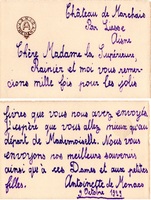 Château de Marchais
Par Liesse
Aisne
Chère Madame la Supérieure,
Rainier et moi vous remer-
cions mille fois pour les jolis
livres que vous nous avez envoyés
J'espère que vous allez mieux qu'au
départ de Mademoiselle. Nous vous
envoyons nos meilleurs souvenirs
ainsi que à ces Dames et aux petites
filles.
Antoinette de Monaco
Octobre